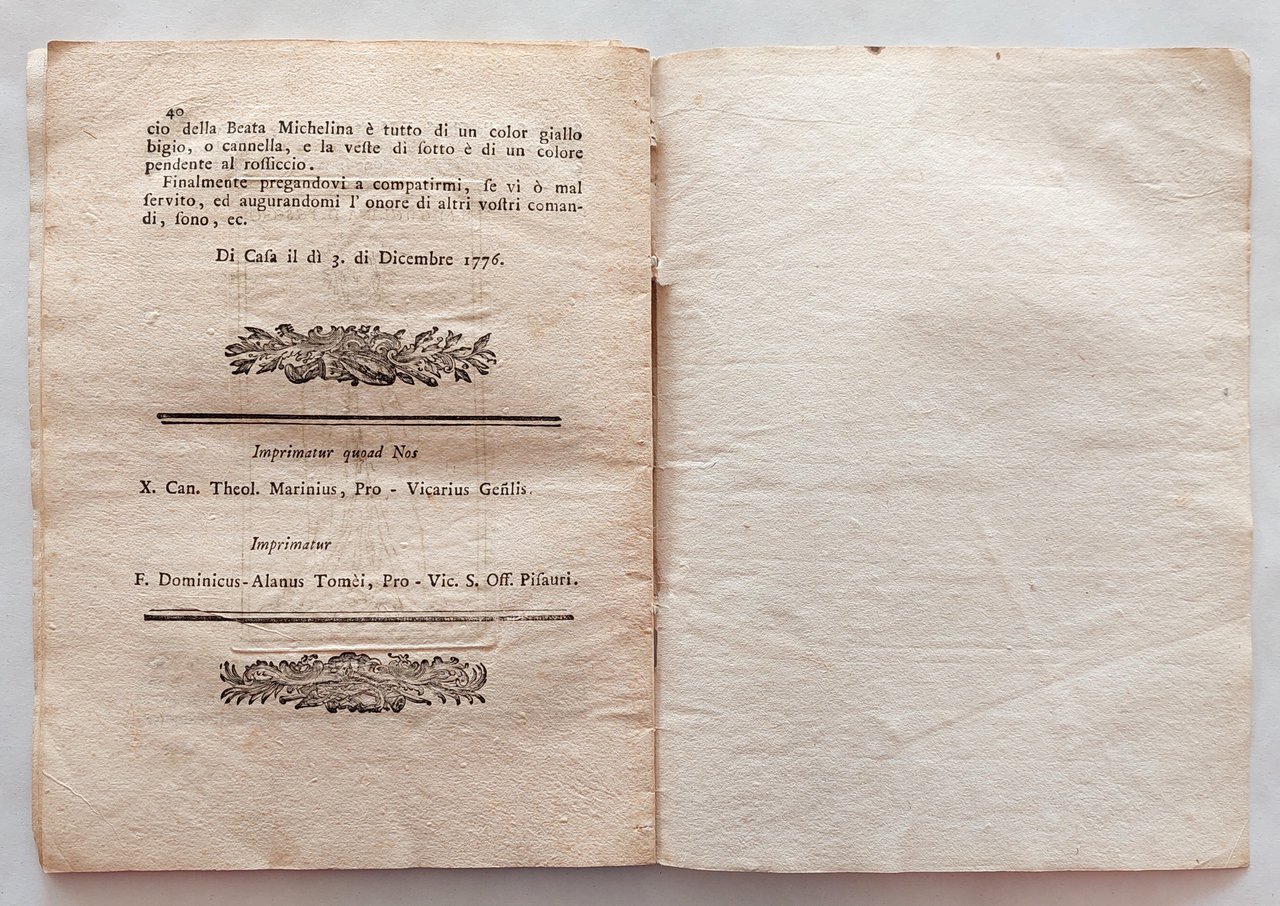 40
cio della Beata Michelina è tutto di un color giallo
bigio, o cannella, e la veſte di ſotto è di un colore
pendente al roſſiccio.
Finalmente pregandovi a compatirmi, ſe vi ò mal
ſervito, ed augurandomi l' onore di altri voſtri coman-
di, ſono, ec.
Di Caſa il dì 3. di Dicembre 1776.
Imprimatur quoad Nos
X. Can. Theol. Marinius, Pro - Vicarius Gen̄lis.
Imprimatur
F. Dominicus-Alanus Tomèi, Pro - Vic. S. Off. Piſauri.